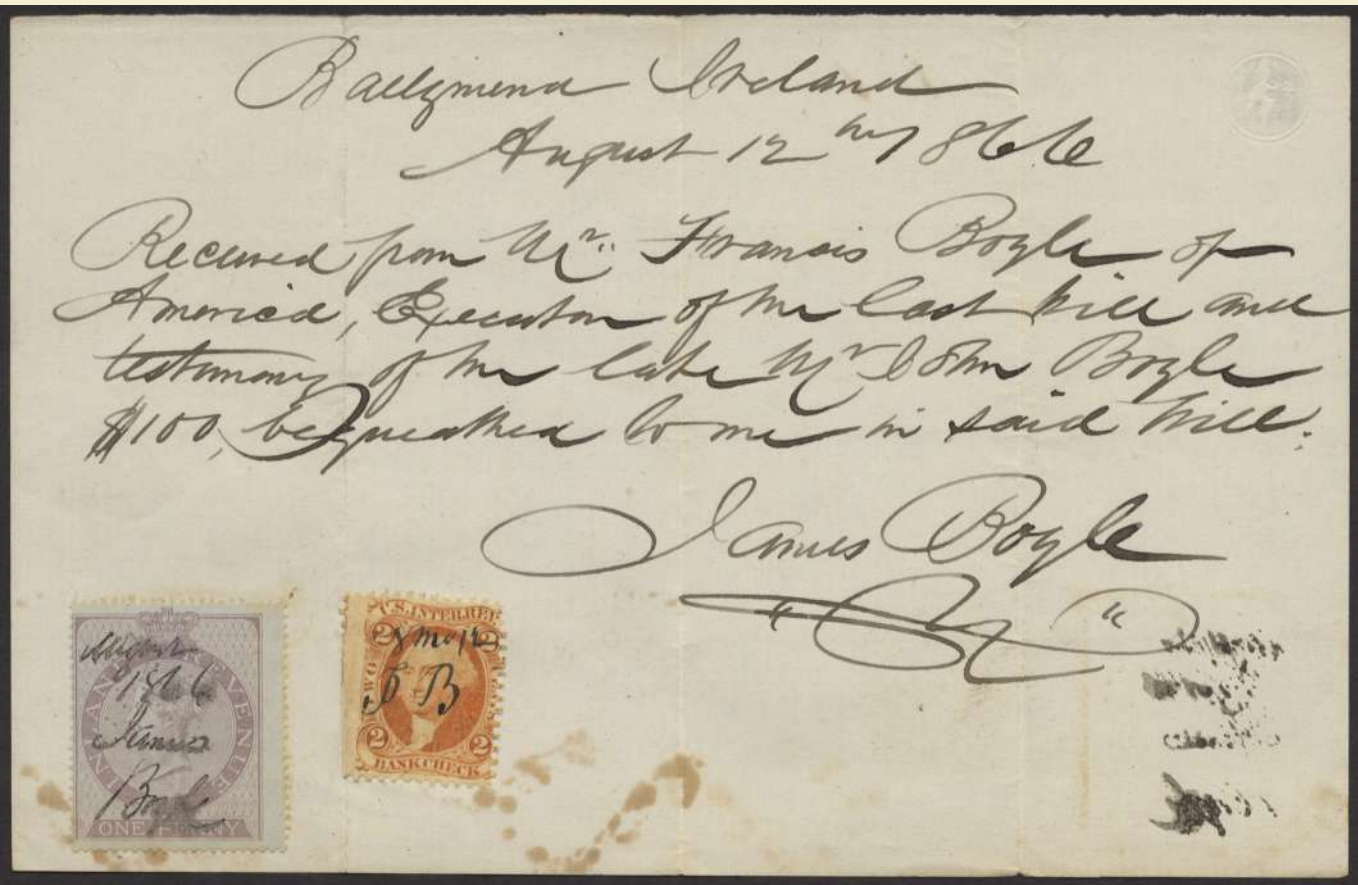 Ballymena Ireland
August 12th 1866
Received from Mr. Francis Boyle of
America, Executor of the last will and
testimony of the late Mr John Boyle
$100, bequeathed to me in said will.
James Boyle
August
1866
James
Boyle
INLAND REVENUE
ONE PENNY
U.S. INTER. REV.
8 mo 12
J B
TWO
2 2
2 2
BANK CHECK